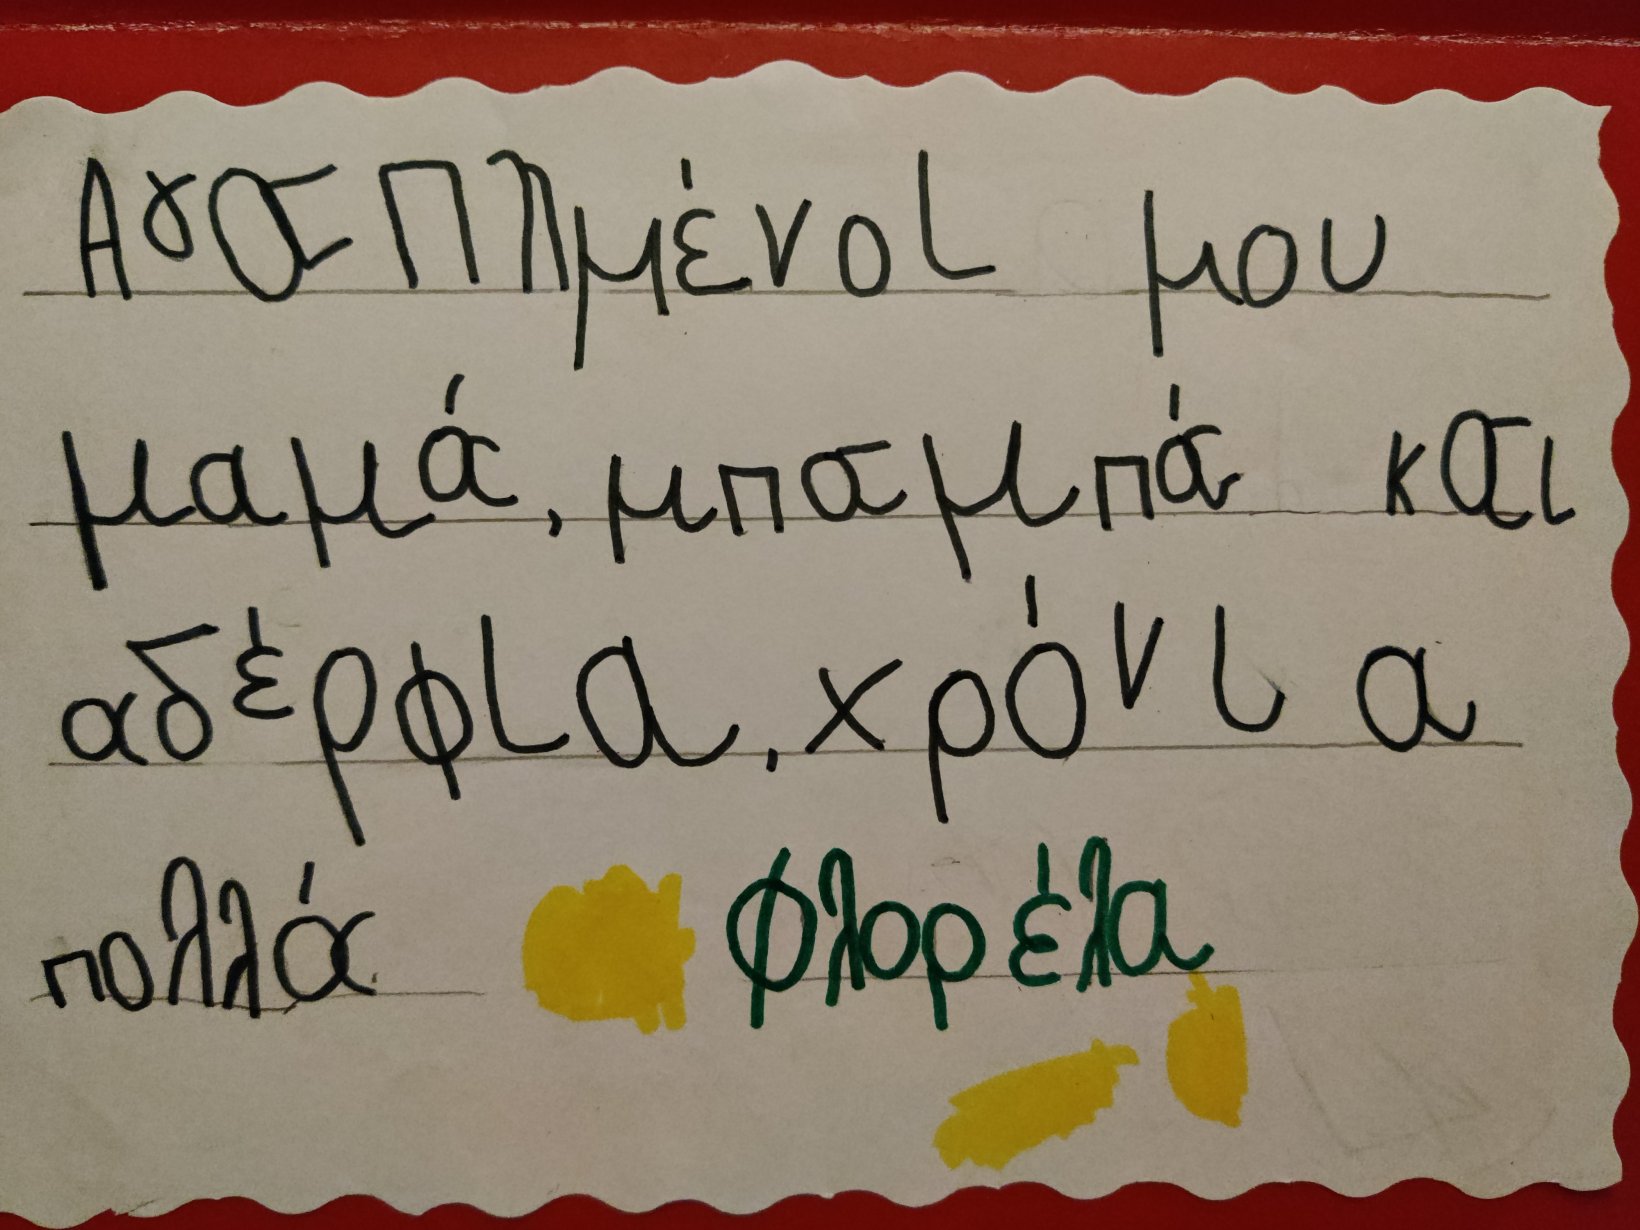 Αγαπημένοι μου
μαμά, μπαμπά και
αδέρφια, χρόνια
πολλά Φλορέλα